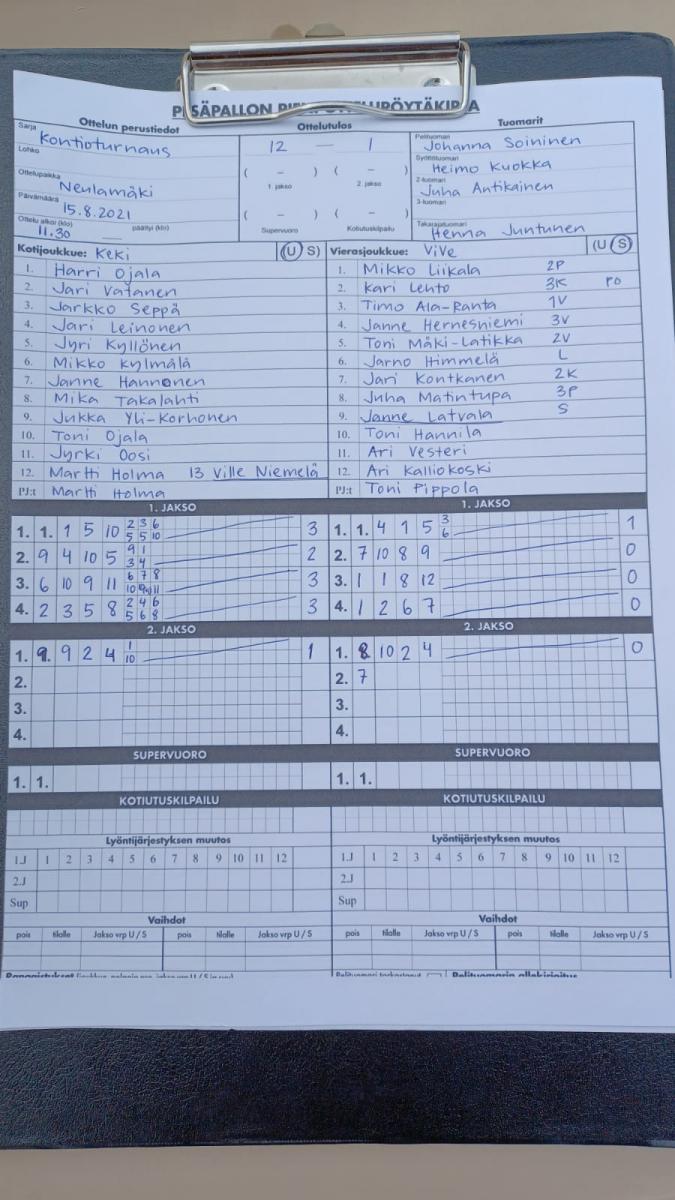 PESÄPALLON PIENPELIPÖYTÄKIRJA
Ottelun perustiedot
Ottelutulos
Tuomarit
Sarja Kontioturnaus
Lohko
Ottelupaikka Neulamäki
Päivämäärä 15.8.2021
Ottelu alkoi (klo) 11.30 päättyi (klo)
12 — 1
( – ) ( – )
1. jakso 2. jakso
( – ) ( – )
Supervuoro Kotiutuskilpailu
Pelituomari Johanna Soininen
Syöttötuomari Heimo Kuokka
2-tuomari Juha Antikainen
3-tuomari
Takarajatuomari Henna Juntunen
Kotijoukkue: KeKi (U S)
1. Harri Ojala
2. Jari Vatanen
3. Jarkko Seppä
4. Jari Leinonen
5. Jyri Kyllönen
6. Mikko Kylmälä
7. Janne Hannonen
8. Mika Takalahti
9. Jukka Yli-Korhonen
10. Toni Ojala
11. Jyrki Oosi
12. Martti Holma 13 Ville Niemelä
PJ:t Martti Holma
Vierasjoukkue: ViVe (U S)
1. Mikko Liikala 2P
2. Kari Lehto 3K PO
3. Timo Ala-Ranta 1V
4. Janne Hernesniemi 3V
5. Toni Mäki-Latikka 2V
6. Jarno Himmelä L
7. Jari Kontkanen 2K
8. Juha Matintupa 3P
9. Janne Latvala S
10. Toni Hannila
11. Ari Vesteri
12. Ari Kalliokoski
PJ:t Toni Pippola
1. JAKSO
1. 1. 1 5 10 2 3 6 5 5 10 3
2. 9 4 10 5 9 1 3 4 2
3. 6 10 9 11 6 7 8 3
4. 2 3 5 8 2 4 6 5 6 8 3
1. JAKSO
1. 1. 4 1 5 3 6 1
2. 7 10 8 9 0
3. 1 1 8 12 0
4. 1 2 6 7 0
2. JAKSO
1. 9. 9 2 4 1 10 1
2.
3.
4.
2. JAKSO
1. 8 10 2 4 0
2. 7
3.
4.
SUPERVUORO
1. 1.
SUPERVUORO
1. 1.
KOTIUTUSKILPAILU
KOTIUTUSKILPAILU
Lyöntijärjestyksen muutos
1.J 1 2 3 4 5 6 7 8 9 10 11 12
2.J
Sup
Lyöntijärjestyksen muutos
1.J 1 2 3 4 5 6 7 8 9 10 11 12
2.J
Sup
Vaihdot
pois tilalle Jakso vrp U / S pois tilalle Jakso vrp U / S
Vaihdot
pois tilalle Jakso vrp U / S pois tilalle Jakso vrp U / S